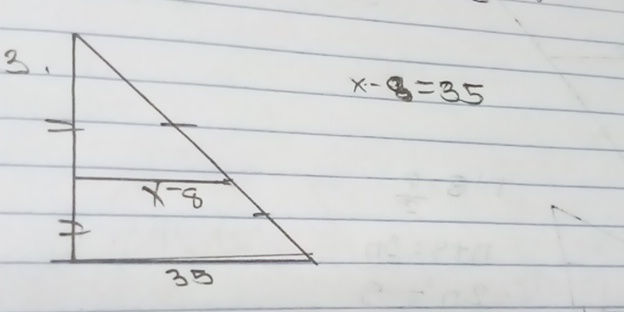 3.
x-8=35
x-8
35